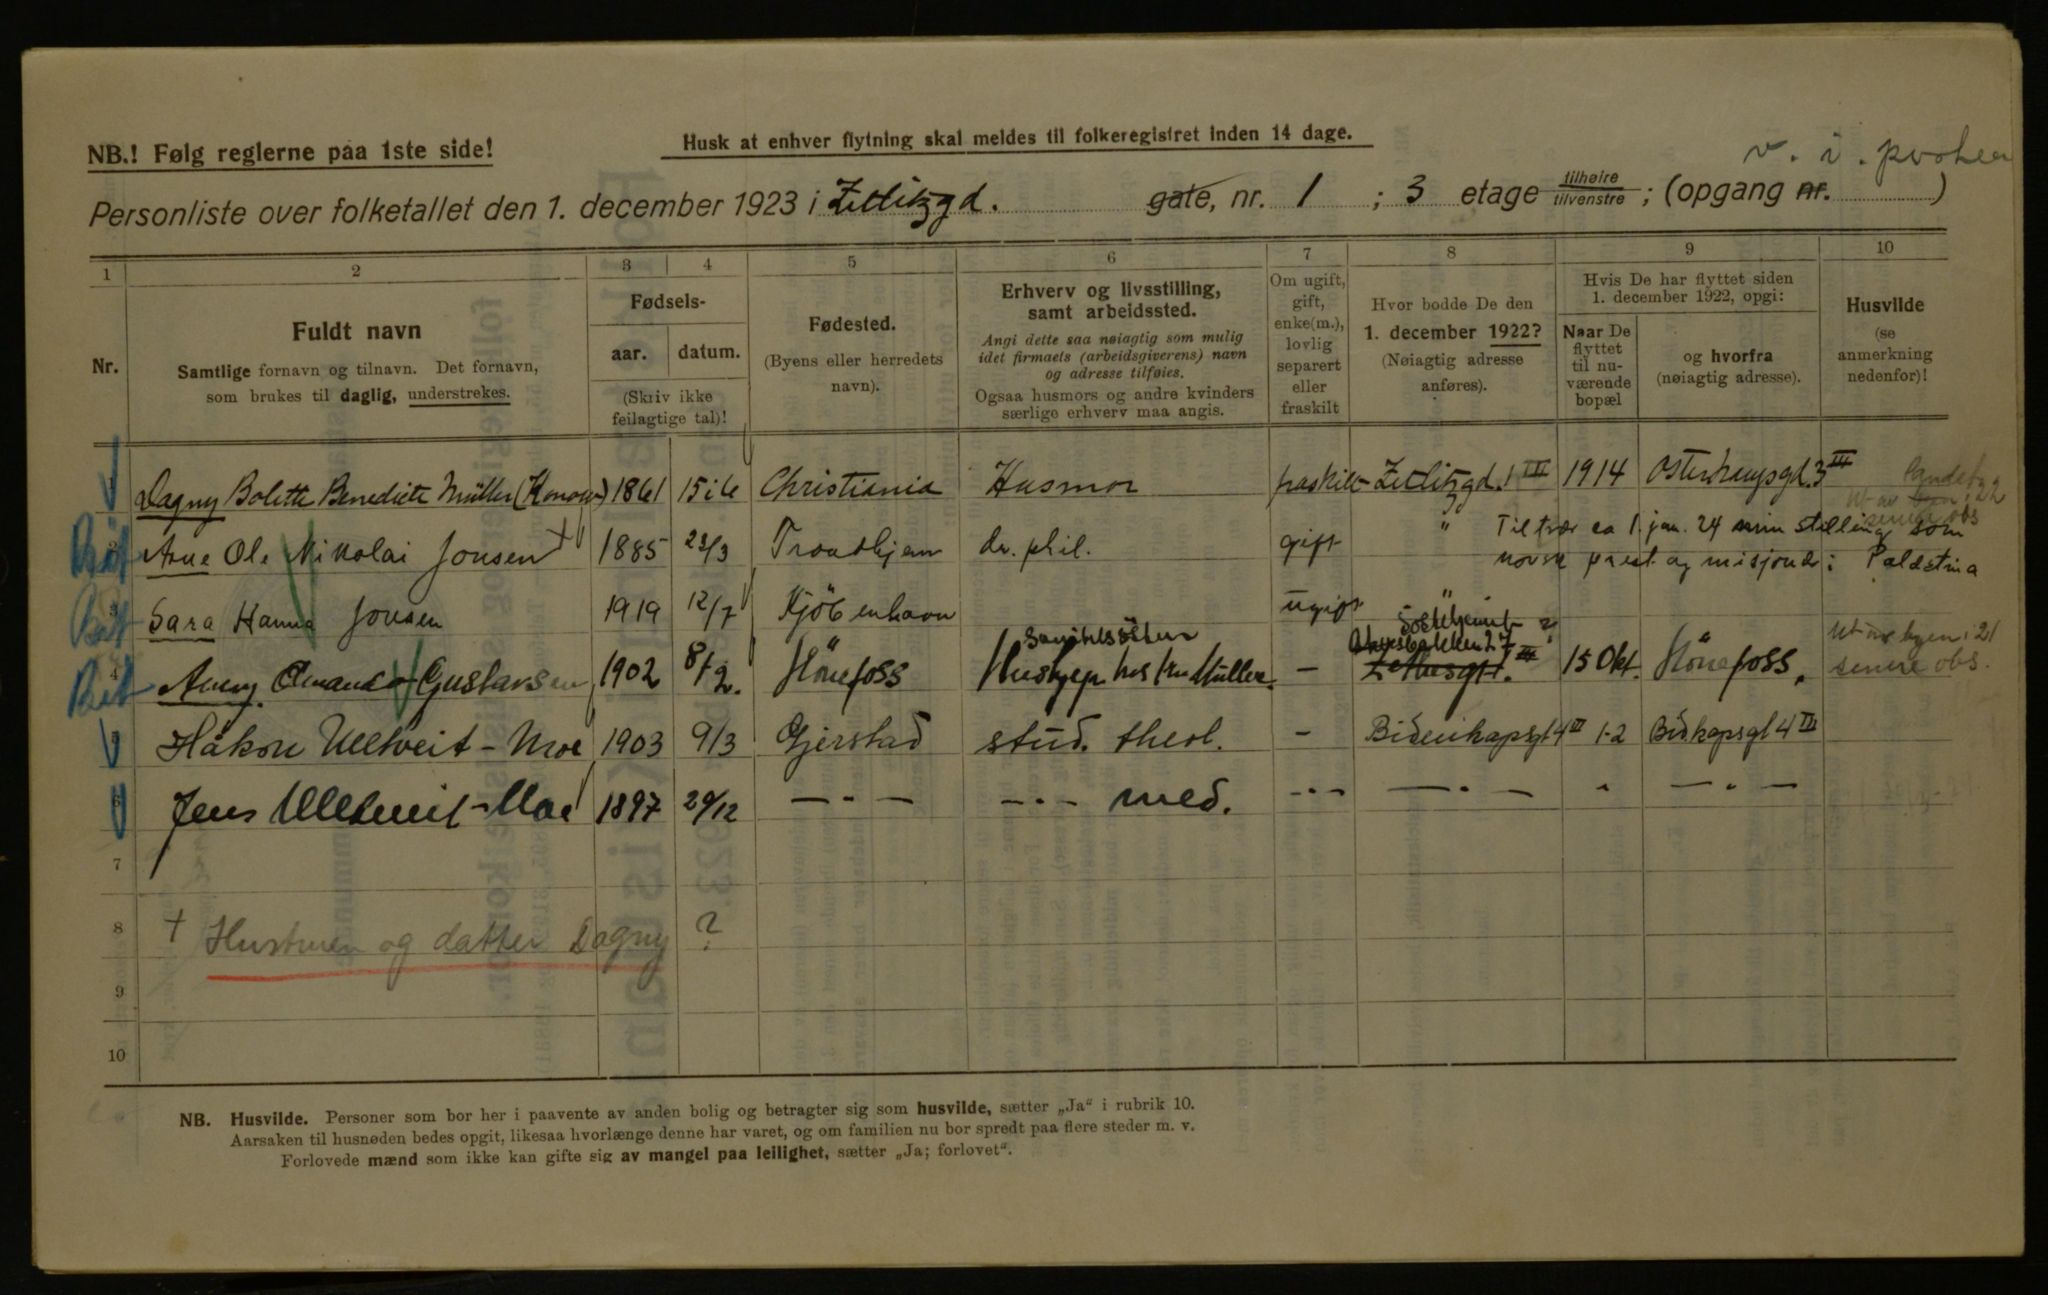 NB.! Følg reglerne paa 1ste side!
Husk at enhver flytning skal meldes til folkeregistret inden 14 dage.
v. i.
Personliste over folketallet den 1. december 1923 i Zetlitzgd. gate, nr. 1 ; 3 etage tilhøire tilvenstre ; (opgang nr. )
1 2 3 4 5 6 7 8 9 10
Nr.
Fuldt navn
Samtlige fornavn og tilnavn. Det fornavn,
som brukes til daglig, understrekes.
Fødsels-
aar. datum.
(Skriv ikke
feilagtige tal)!
Fødested.
(Byens eller herredets
navn).
Erhverv og livsstilling,
samt arbeidssted.
Angi dette saa nøiagtig som mulig
idet firmaets (arbeidsgiverens) navn
og adresse tilføies.
Ogsaa husmors og andre kvinders
særlige erhverv maa angis.
Om ugift,
gift,
enke(m.),
lovlig
separert
eller
fraskilt
Hvor bodde De den
1. december 1922?
(Nøiagtig adresse
anføres).
Hvis De har flyttet siden
1. december 1922, opgi:
Naar De
flyttet
til nu-
værende
bopæl
og hvorfra
(nøiagtig adresse).
Husvilde
(se
anmerkning
nedenfor)!
Dagny Bolette Benedicte Müller (Konow) 1861 15/6 Christiania Husmor fraskilt Zetlitzgd. 1 III 1914 Osterhausgd. 3 III
Arne Ole Nikolai Jonsen + 1885 23/3 Trondhjem dr. phil. gift " Tiltrær ca 1. jan. 24 min stilling som
norsk prest og misjonær i Palæstina
Sara Hanna Jonsen 1919 12/7 Kjöbenhavn ugift "
4 Amanda Gustavsen 1902 8/2. Hönefoss Hushjep. hos fru Müller. - Zetlitsgt. III 15 Okt. Hönefoss. Ut av byen i 21
senere obs.
Håkon Ulltveit-Moe 1903 9/3 Gjerstad stud. theol. - 1-2 4 III
6 Jens Ulltveit-Moe 1897 29/12 — " — — " — med. - " - — " — " — " —
7
8 + Hustruen og datter Dagny ?
9
10
NB. Husvilde. Personer som bor her i paavente av anden bolig og betragter sig som husvilde, sætter „Ja“ i rubrik 10.
Aarsaken til husnøden bedes opgit, likesaa hvorlænge denne har varet, og om familien nu bor spredt paa flere steder m. v.
Forlovede mænd som ikke kan gifte sig av mangel paa leilighet, sætter „Ja; forlovet“.